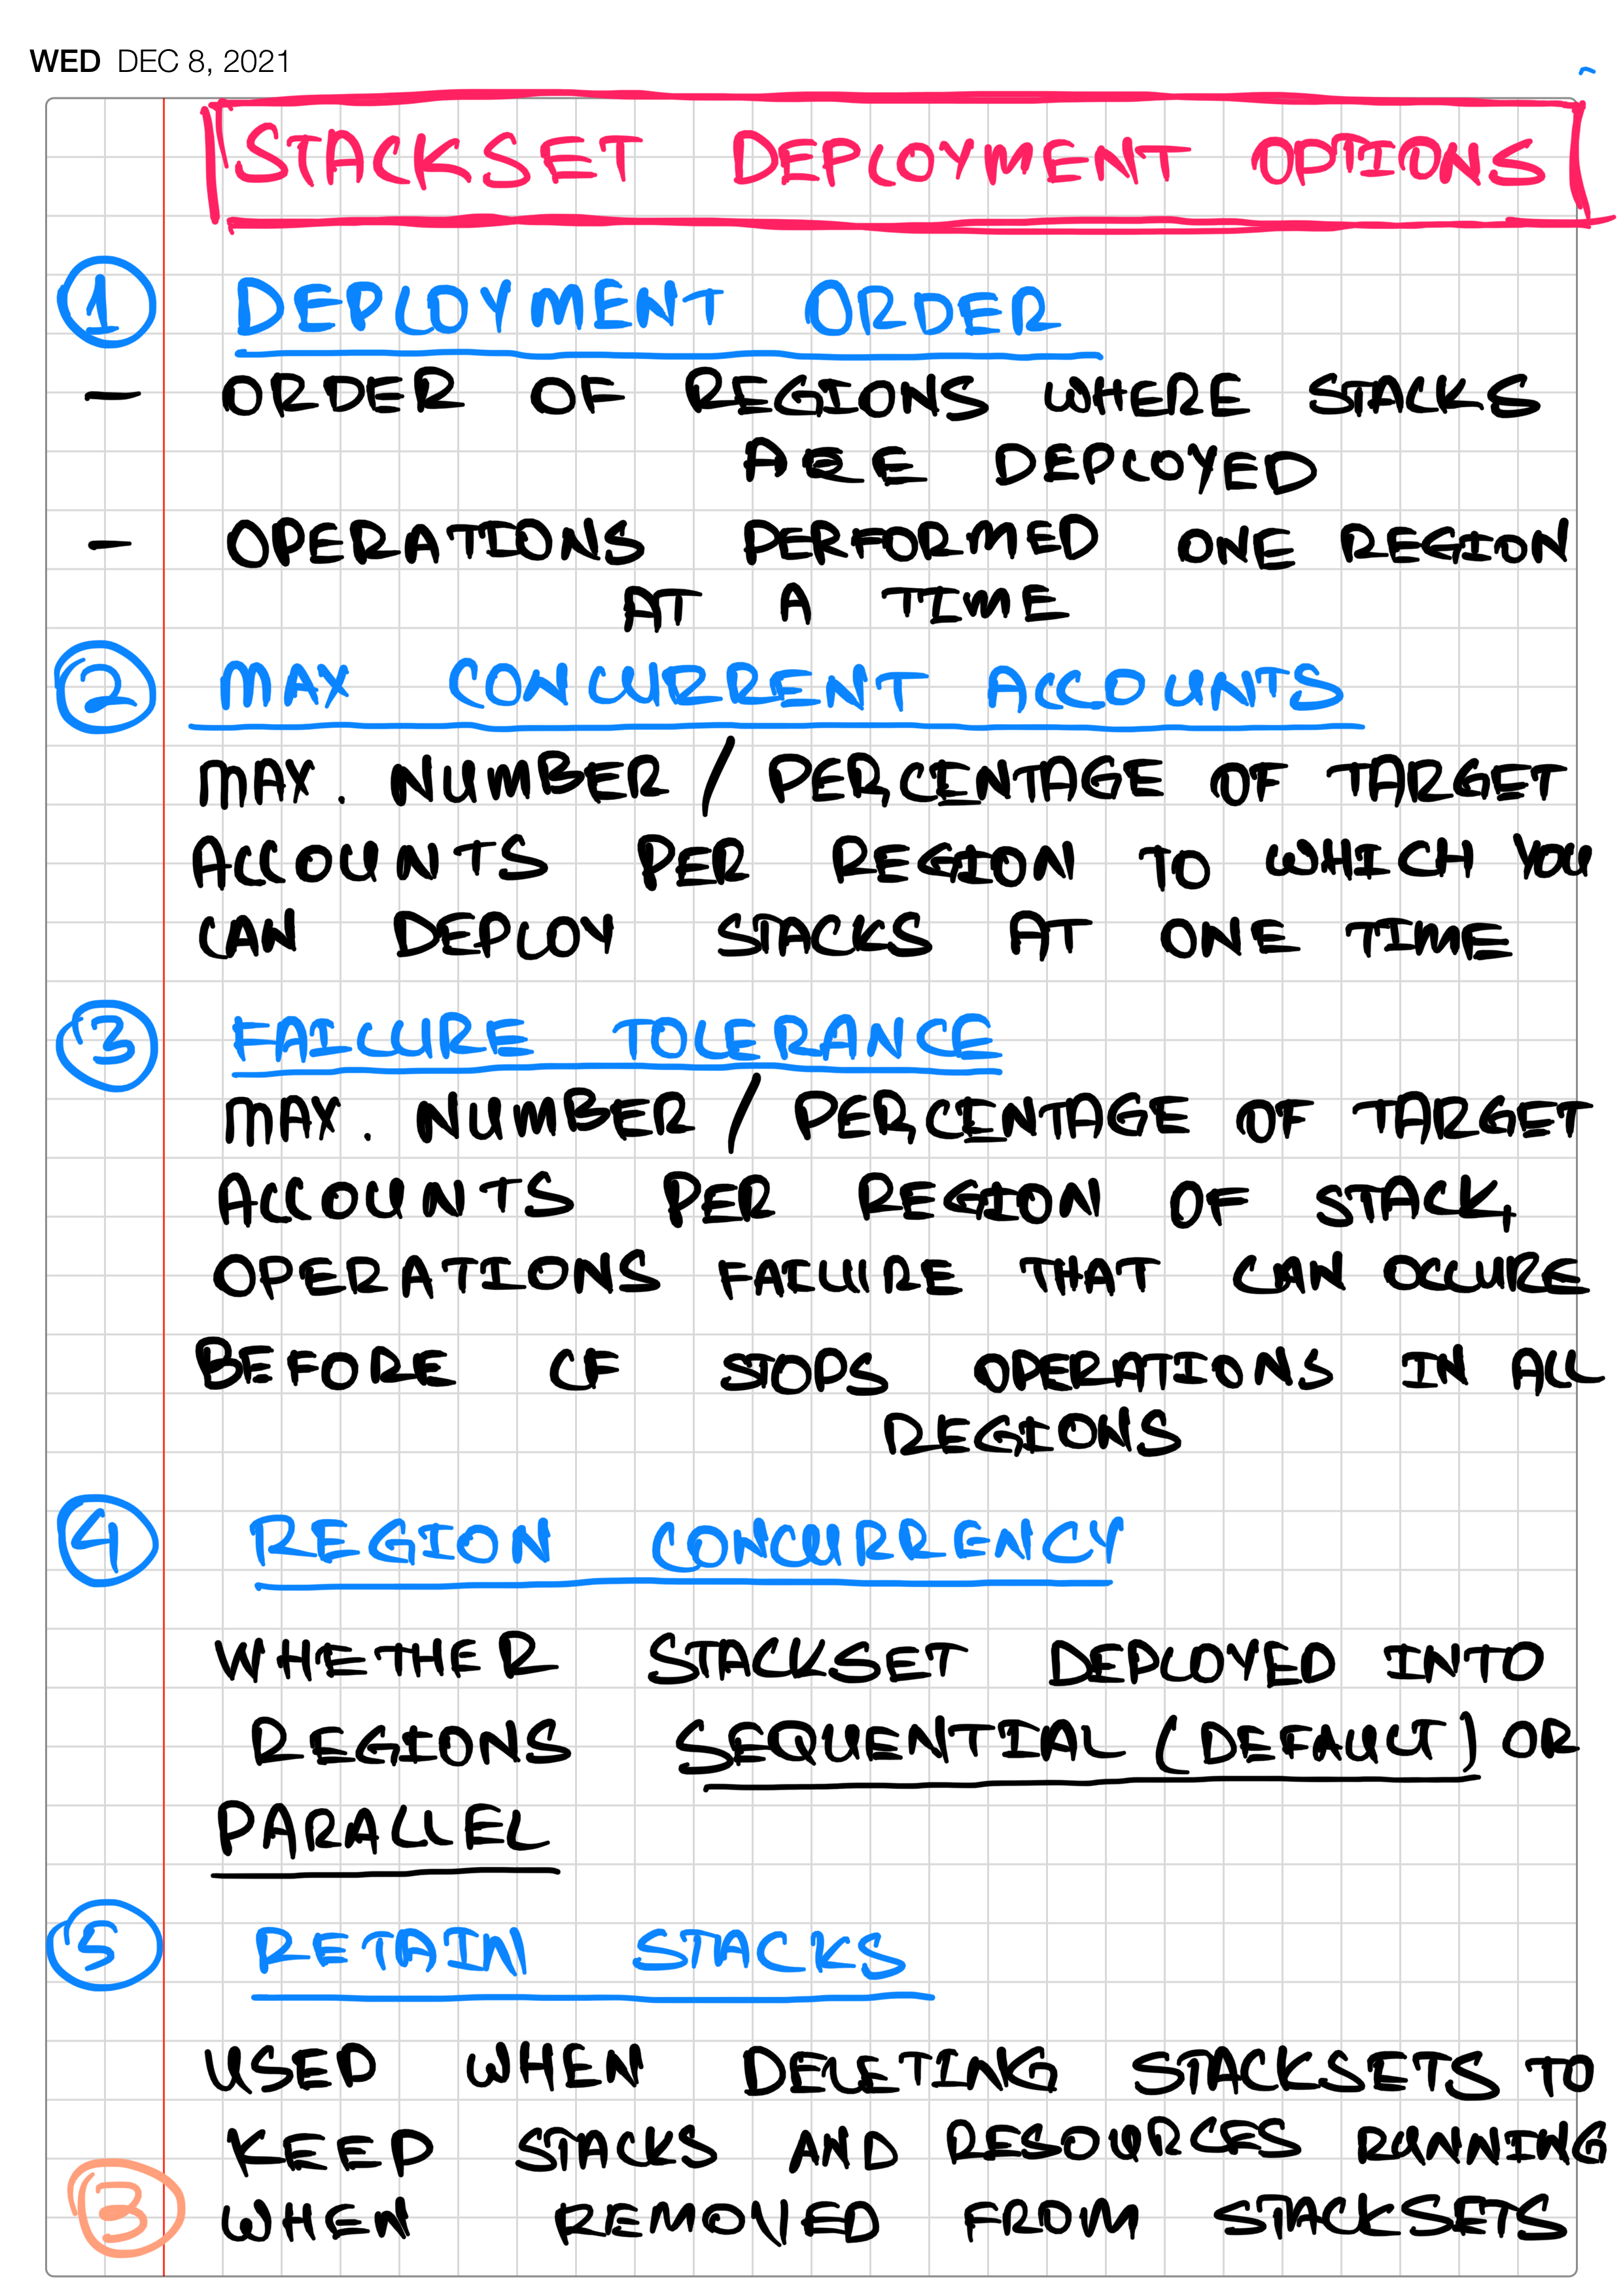 WED DEC 8, 2021
STACKSET DEPLOYMENT OPTIONS
1 DEPLOYMENT ORDER
- ORDER OF REGIONS WHERE STACKS
ARE DEPLOYED
- OPERATIONS PERFORMED ONE REGION
AT A TIME
2 MAX CONCURRENT ACCOUNTS
MAX. NUMBER / PERCENTAGE OF TARGET
ACCOUNTS PER REGION TO WHICH YOU
CAN DEPLOY STACKS AT ONE TIME
3 FAILURE TOLERANCE
MAX. NUMBER / PERCENTAGE OF TARGET
ACCOUNTS PER REGION OF STACK
OPERATIONS FAILURE THAT CAN OCCURE
BEFORE CF STOPS OPERATIONS IN ALL
REGIONS
4 REGION CONCURRENCY
WHETHER STACKSET DEPLOYED INTO
REGIONS SEQUENTIAL (DEFAULT) OR
PARALLEL
5 RETAIN STACKS
USED WHEN DELETING STACKSETS TO
KEEP STACKS AND RESOURCES RUNNING
3 WHEN REMOVED FROM STACKSETS